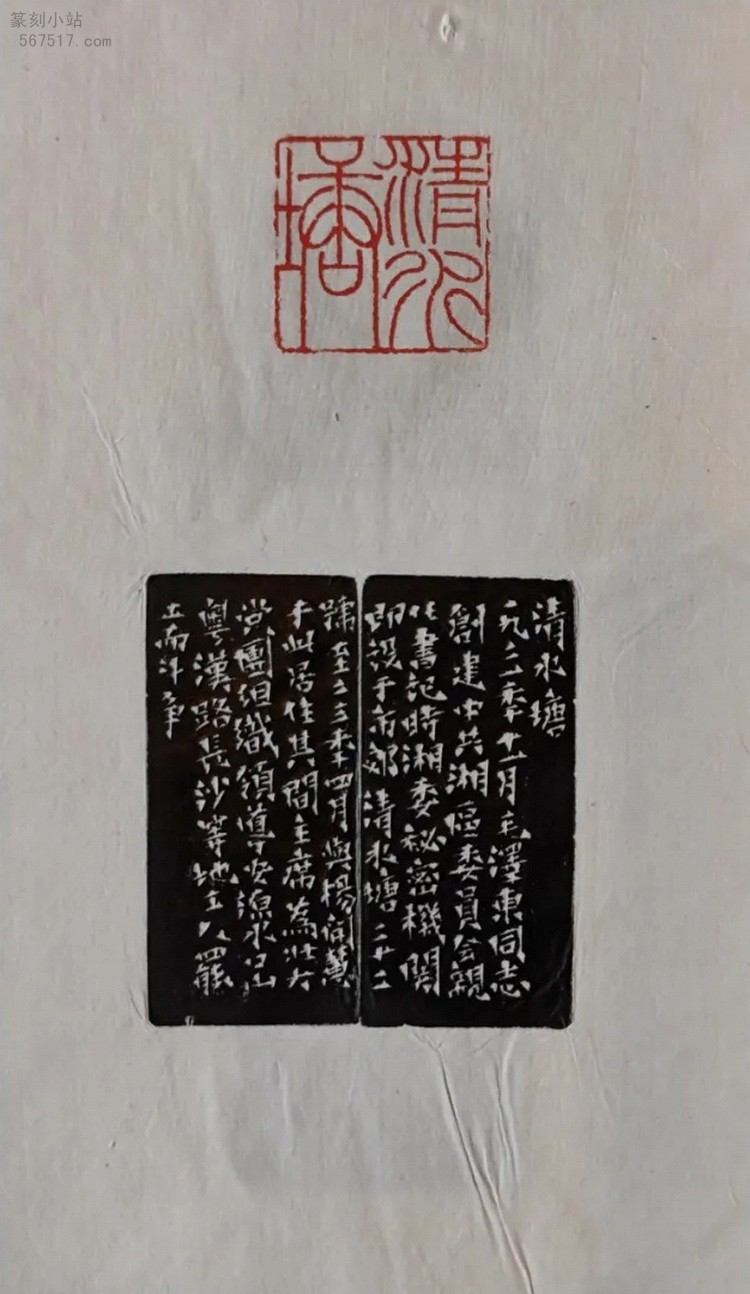 篆刻小站
567517.com
清水塘
清水塘
一九二一年十一月毛澤東同志
創建中共湘區委員會親
任書記時湘委祕密機關
即設于市郊清水塘二十二
號至二三年四月與楊開慧
于此居住其間主席為壯大
党團組織領導安源水口山
粵漢路長沙等地工人罷
工而斗爭